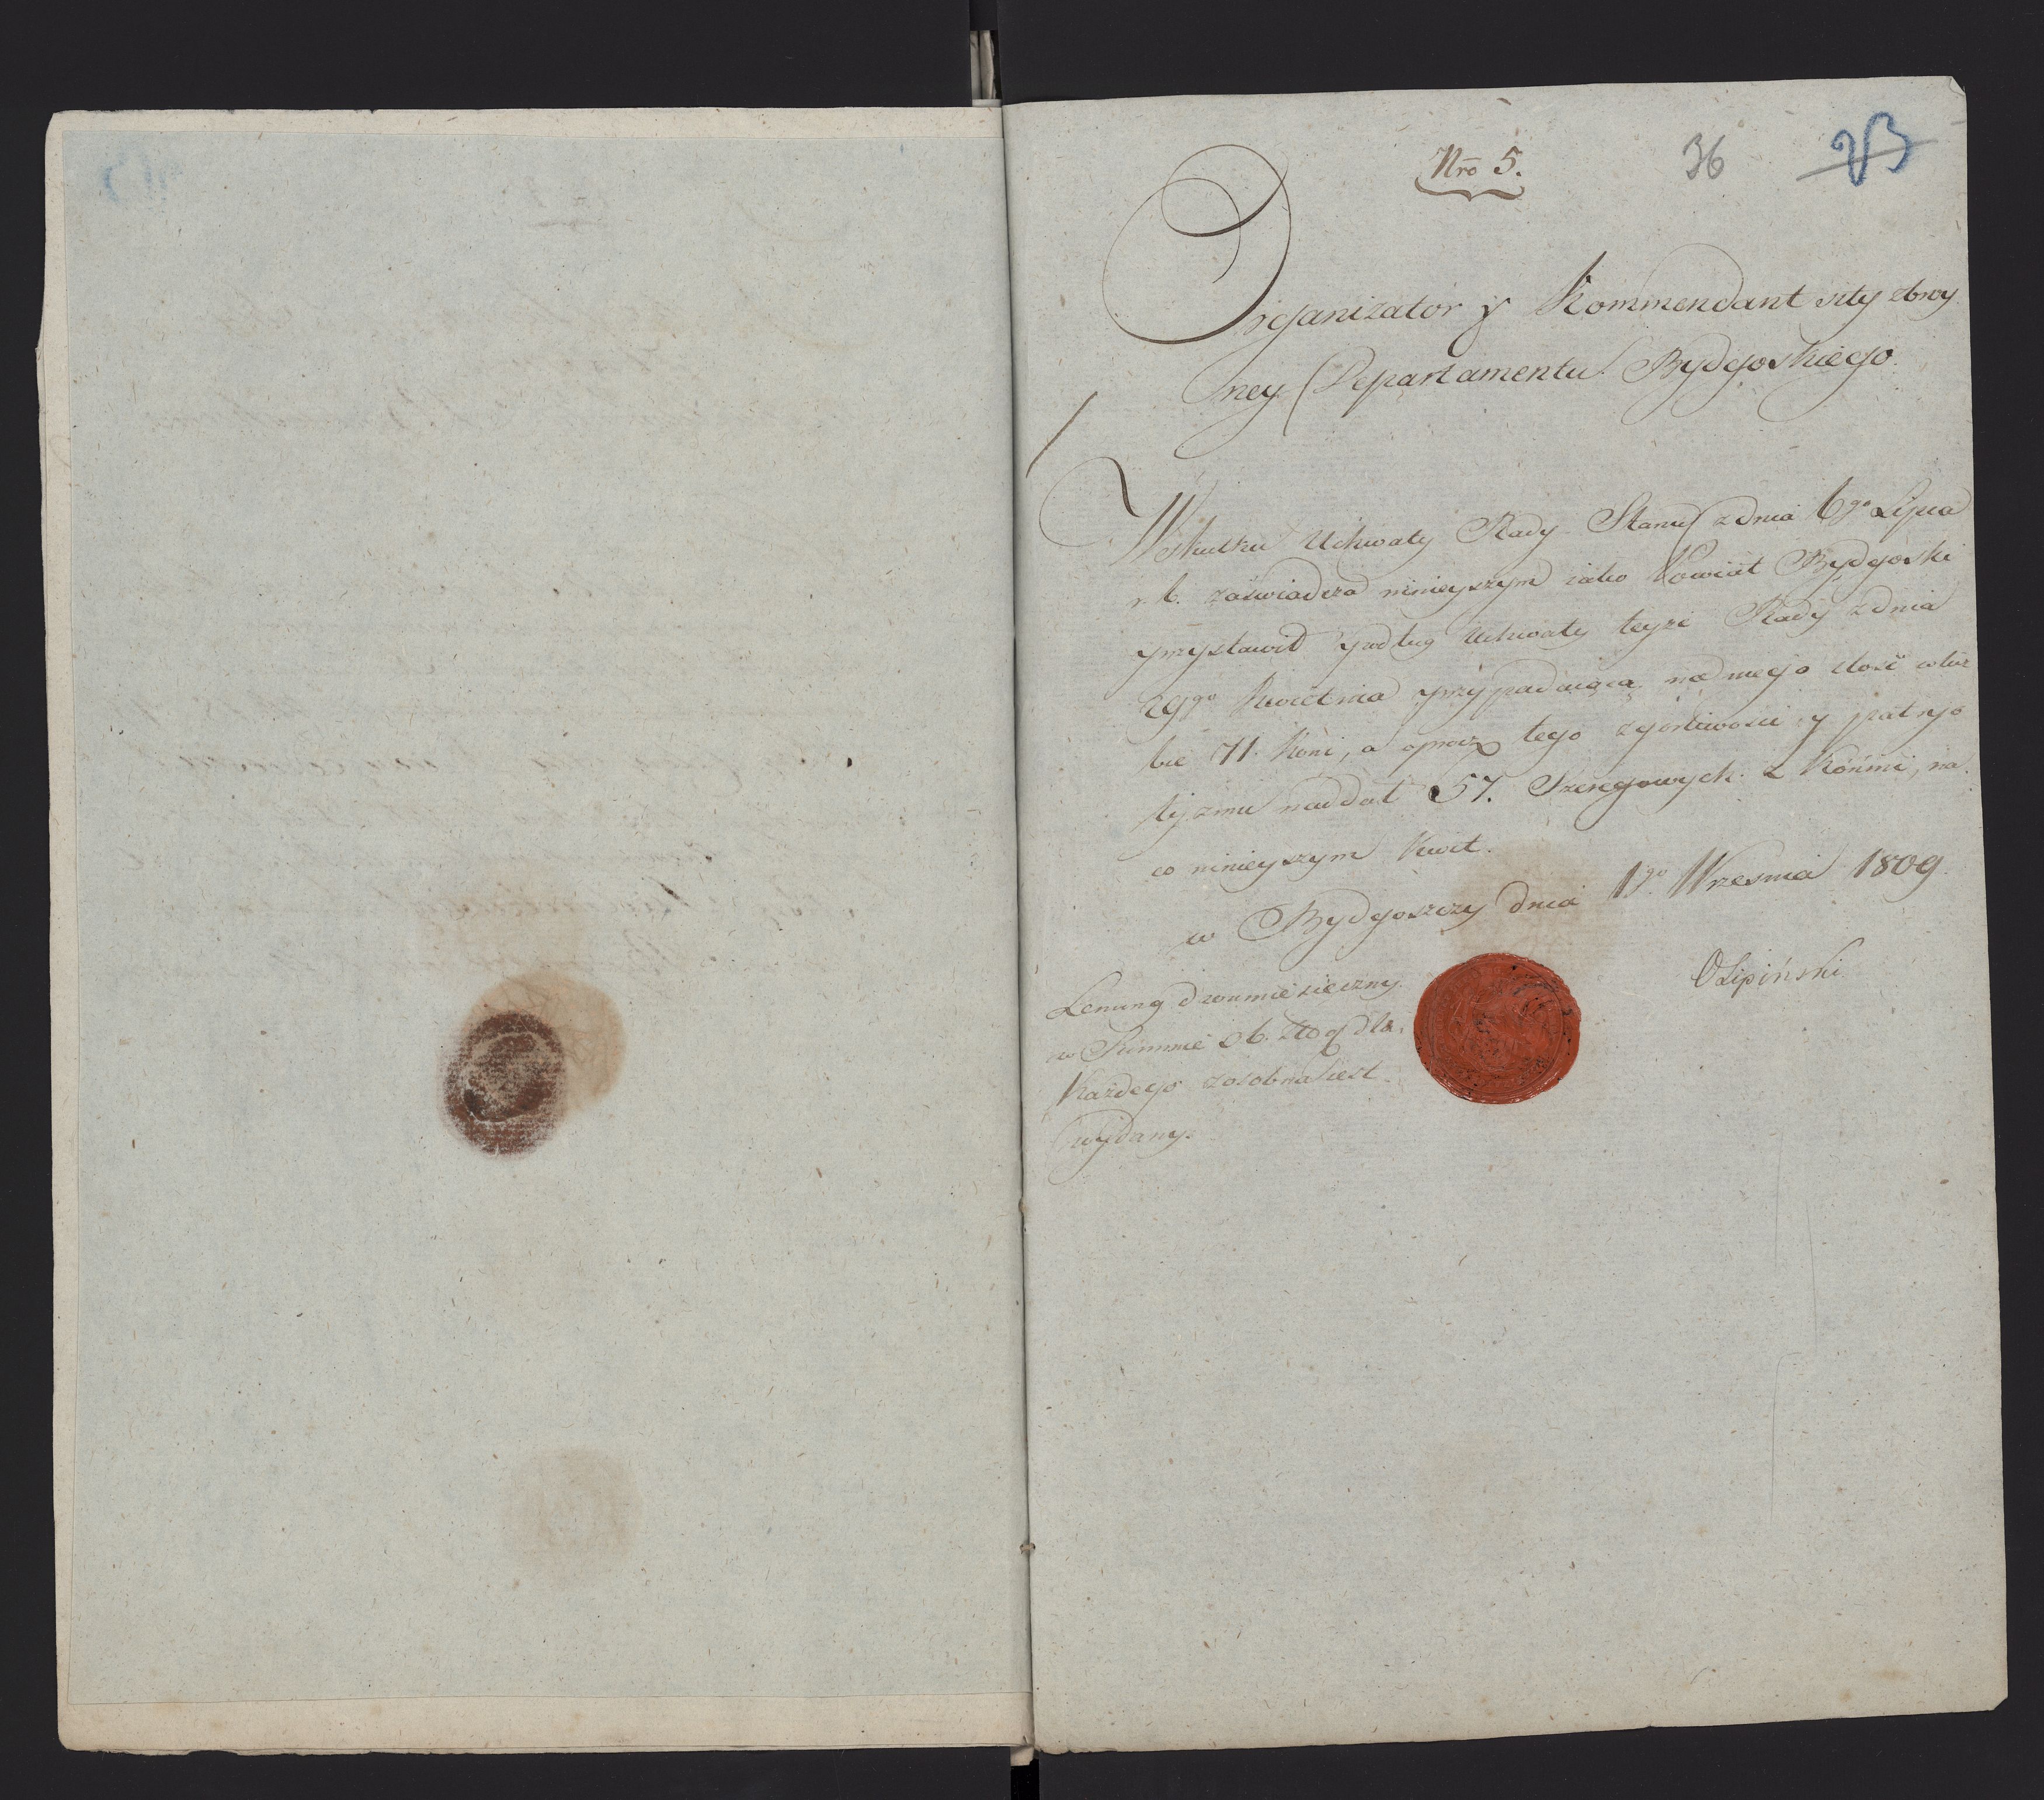 Nro 5.
36
23
Organizator y Kommendant siły zbroy
ney Departamentu Bydgoskiego.
Weskutku Uchwały Rady Stanu z dnia 6go Lipca
r. b. zaświadcza ninieyszym iako Powiat Bydgoski
przystawił podług Uchwały teyże Rady z dnia
29go Kwietnia przypadaiącą na niego ilość w licz
bie 71. Koni, a oprocz tego z gorliwości y patryo
tyzmu naddał 57. Szeregowych z Końmi, na
co ninieyszym Kwit.
w Bydgoszczy dnia 1go Wrzesnia 1809.
OLipiński
Lenung dwumiesięczny
w Summie 36. Zło dla
Każdego zosobna iest
wydany.